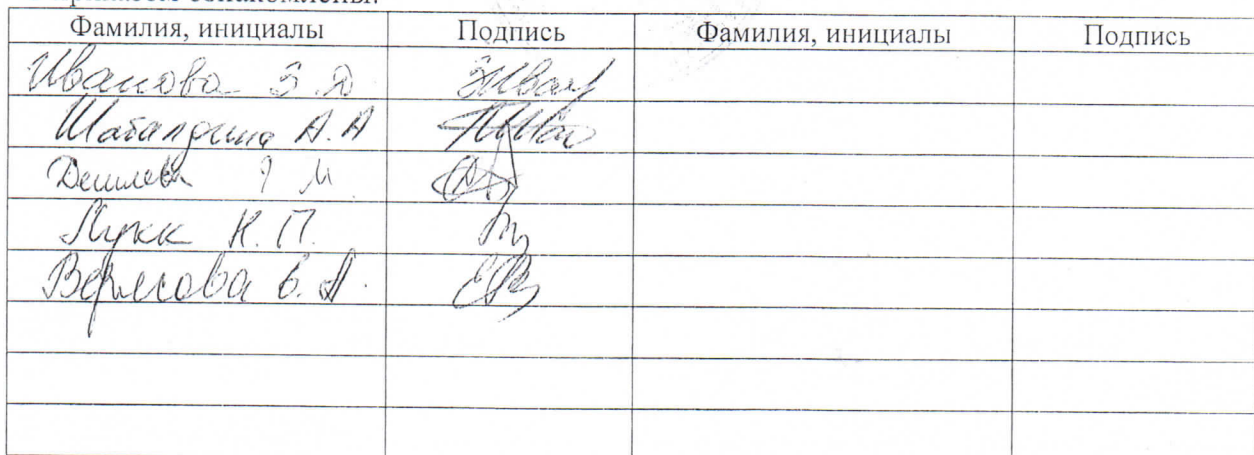 ознакомлены.
Фамилия, инициалы Подпись Фамилия, инициалы Подпись
Иванова З Д
Шабалдина А.А
Дешлева М.
Лукк К.П.
Верясова Е.А.